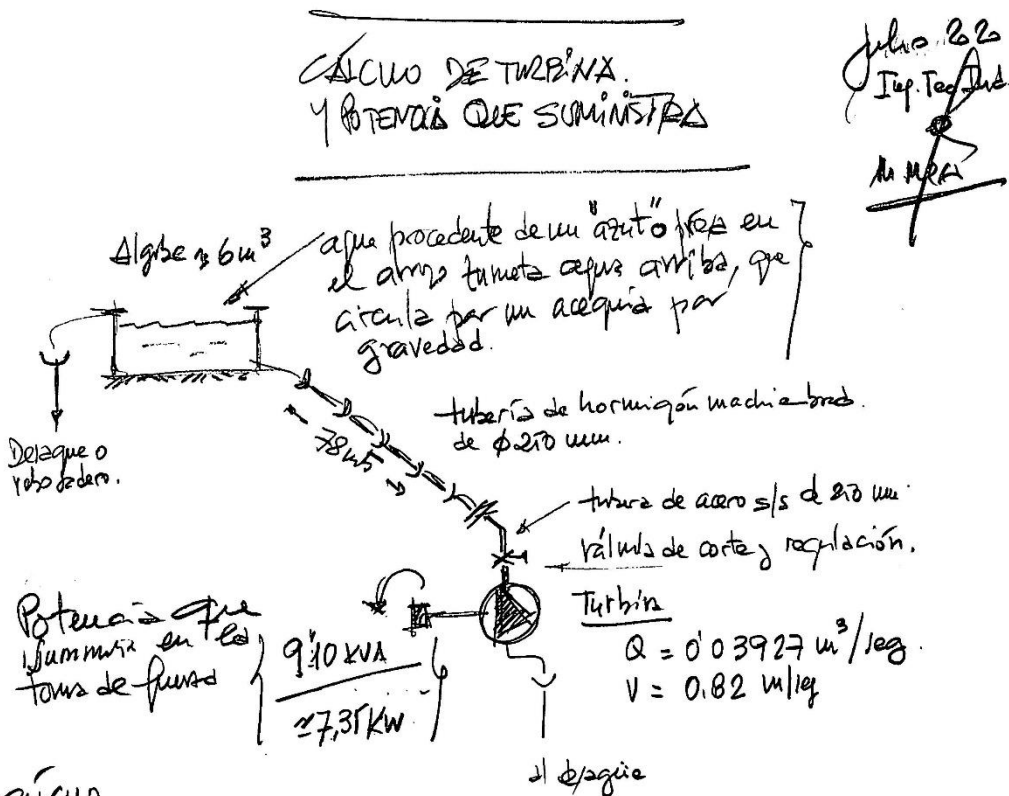 CÁLCULO DE TURBINA.
Y POTENCIA QUE SUMINISTRA
Julio 22
Ing. Tec. Ind.
Algibe ≈ 6 m³
agua procedente de un "azut" o presa en
el arroyo tumeta agua arriba, que
circula por un acequia por
gravedad.
Desague o
rebosadero.
78 mts
tubería de hormigón machiembrado.
de Ø 250 mm.
tubera de acero s/s d 250 mm.
válvula de corte y regulación.
Turbina
Q = 0'03927 m³/seg.
V = 0.82 m/seg
Potencia que
suministra en la
toma de fuerza
9'10 KVA
≈7,35 KW
al desagüe